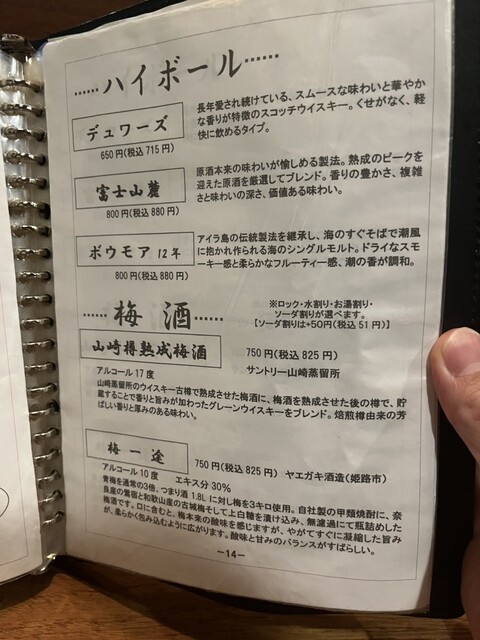 ……ハイボール……
デュワーズ
650円(税込 715円)
長年愛され続けている、スムースな味わいと華やか
な香りが特徴のスコッチウイスキー。くせがなく、軽
快に飲めるタイプ。
富士山麓
800円(税込 880円)
原酒本来の味わいが愉しめる製法。熟成のピークを
迎えた原酒を厳選してブレンド。香りの豊かさ、複雑
さと味わいの深さ、価値ある味わい。
ボウモア 12年
800円(税込 880円)
アイラ島の伝統製法を継承し、海のすぐそばで潮風
に抱かれ作られる海のシングルモルト。ドライなスモ
ーキー感と柔らかなフルーティー感、潮の香が調和。
……梅 酒……
※ロック・水割り・お湯割り・
ソーダ割りが選べます。
【ソーダ割りは+50円(税込 51円)】
山崎樽熟成梅酒
750円(税込 825円)
サントリー山崎蒸留所
アルコール17度
山崎蒸留所のウイスキー古樽で熟成させた梅酒に、梅酒を熟成させた後の樽で、貯
蔵することで香りと旨みが加わったグレーンウイスキーをブレンド。焙煎樽由来の芳
ばしい香りと厚みのある味わい。
梅一途
750円(税込 825円) ヤエガキ酒造(姫路市)
アルコール10度 エキス分30%
青梅を通常の3倍、つまり酒1.8Lに対し梅を3キロ使用。自社製の甲類焼酎に、奈
良産の鶯宿と和歌山産の古城梅そして上白糖を漬け込み、無濾過にて瓶詰めした
梅酒です。口に含むと、梅本来の酸味を感じますが、やがてすぐに凝縮した旨み
が、柔らかく包み込むように広がります。酸味と甘みのバランスがすばらしい。
－14－